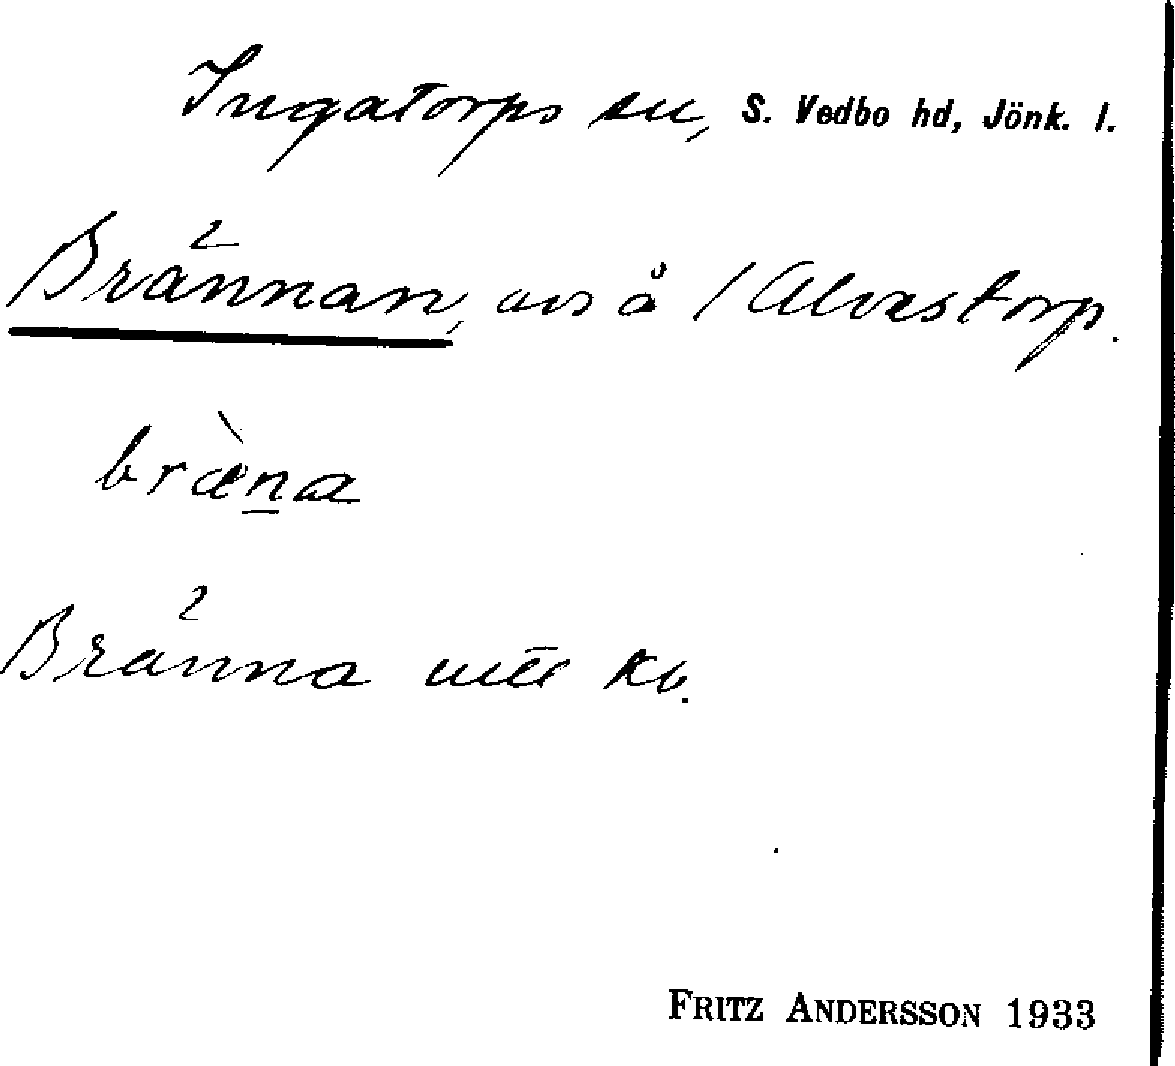 Ingatorps sn, S. Vedbo hd, Jönk. l.
Brännan, avs å /Alvestorp.
bræ̀n̲a
Bränna utt Kb.
FRITZ ANDERSSON 1933